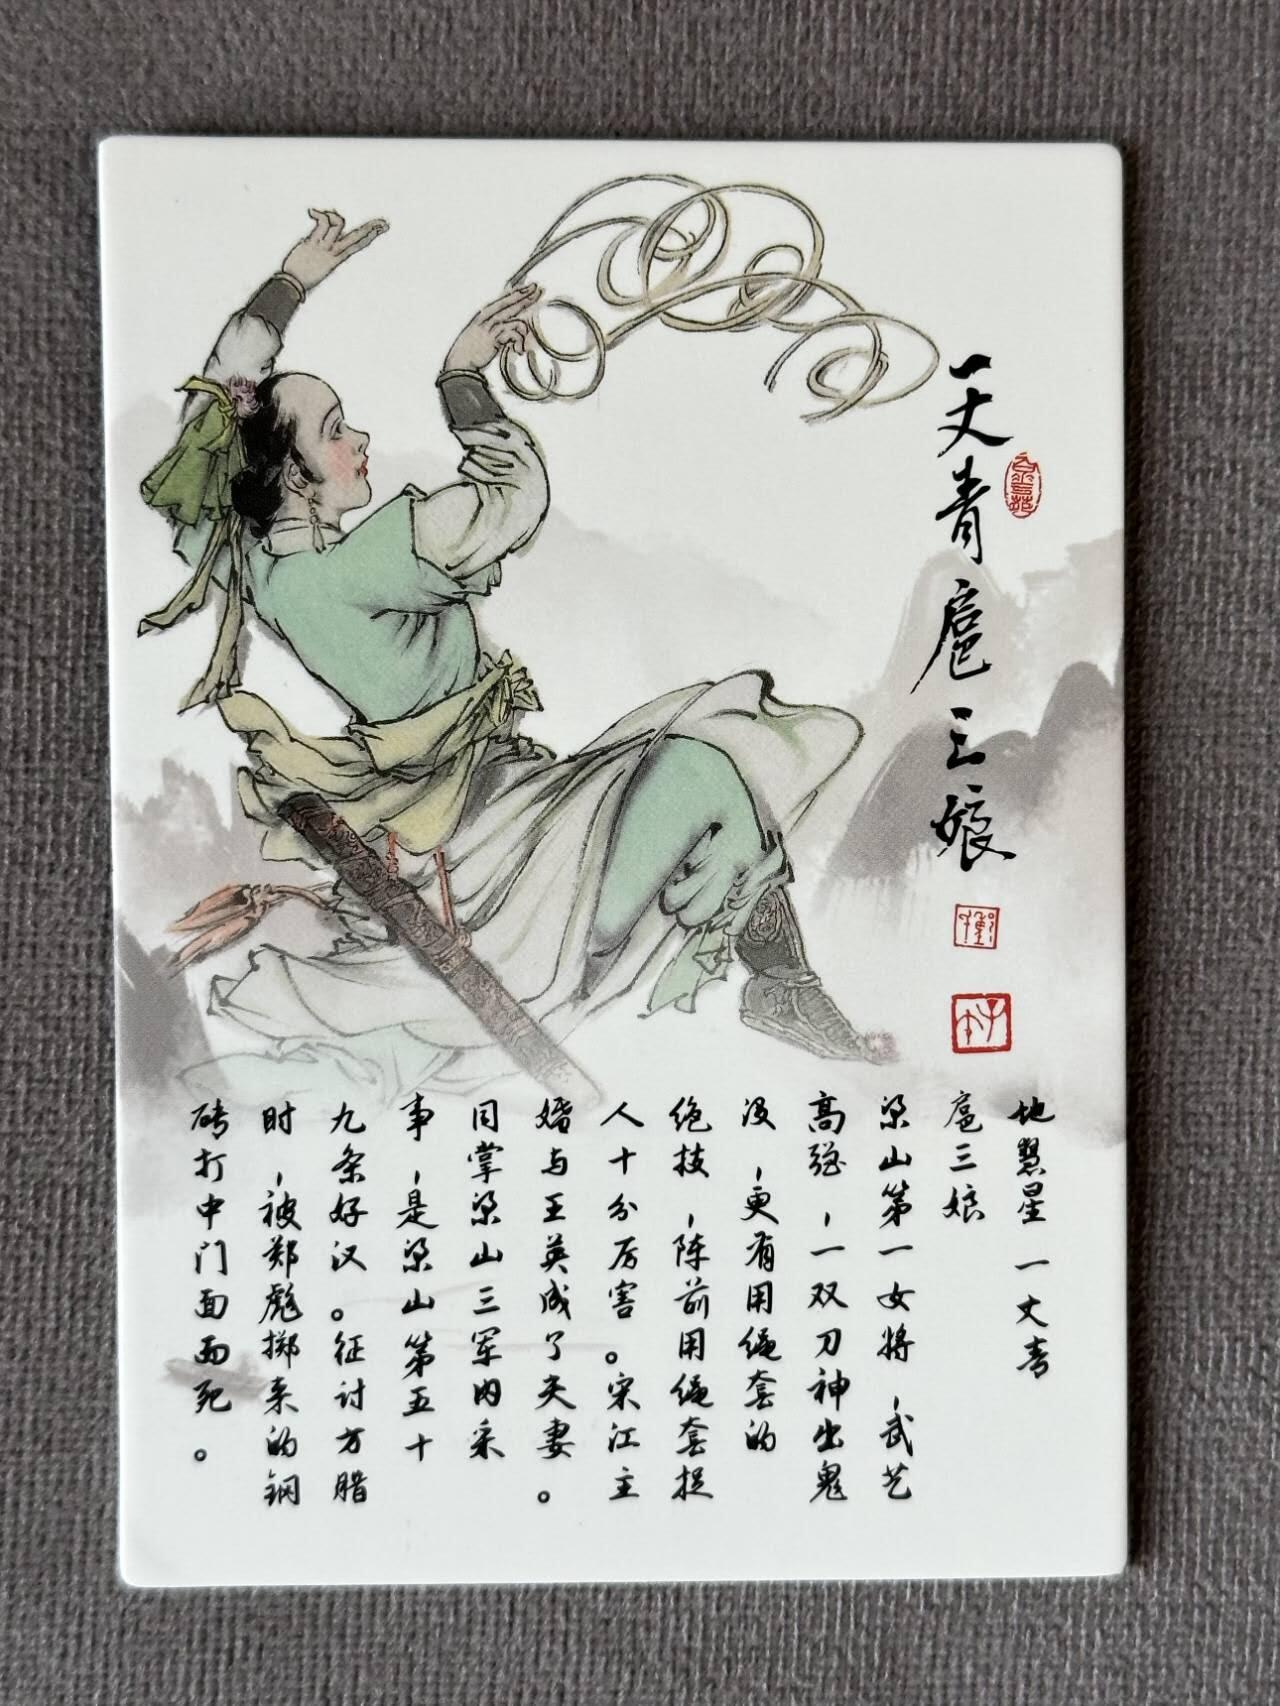 一丈青扈三娘
地慧星一丈青
扈三娘
梁山第一女将,武艺
高强,一双刀神出鬼
没,更有用绳套的
绝技,阵前用绳套捉
人十分厉害。宋江主
婚与王英成了夫妻。
同掌梁山三军内采
事,是梁山第五十
九条好汉。征讨方腊
时,被郑彪掷来的铜
砖打中门面而死。